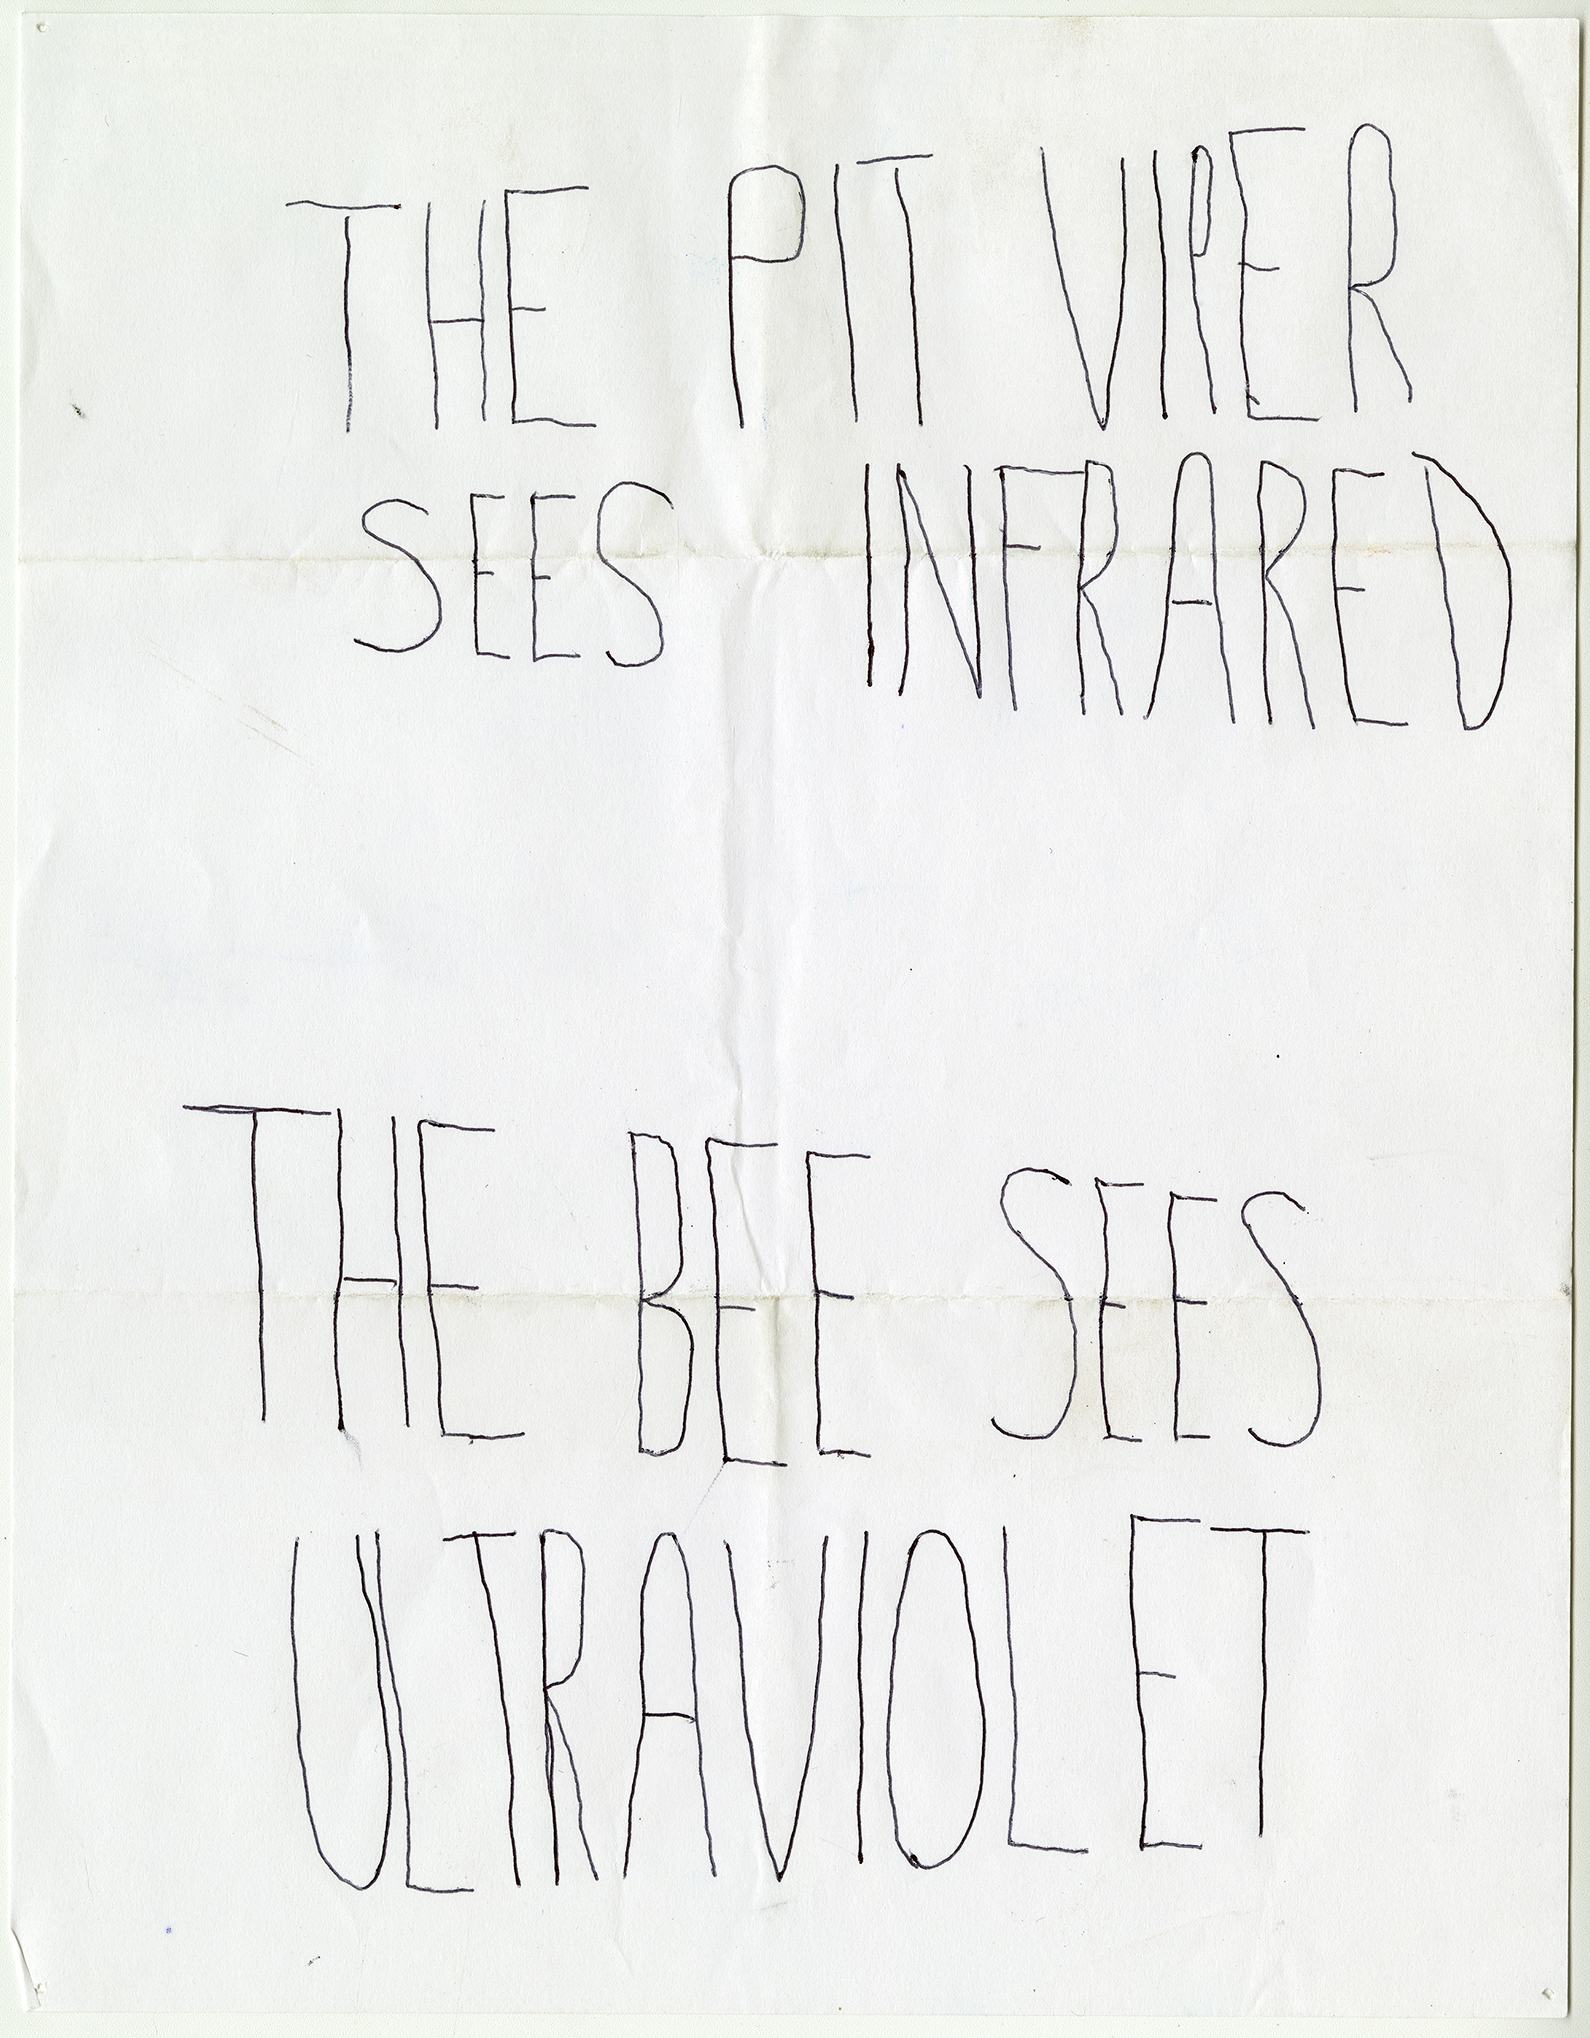 THE PIT VIPER
SEES INFRARED
THE BEE SEES
ULTRAVIOLET